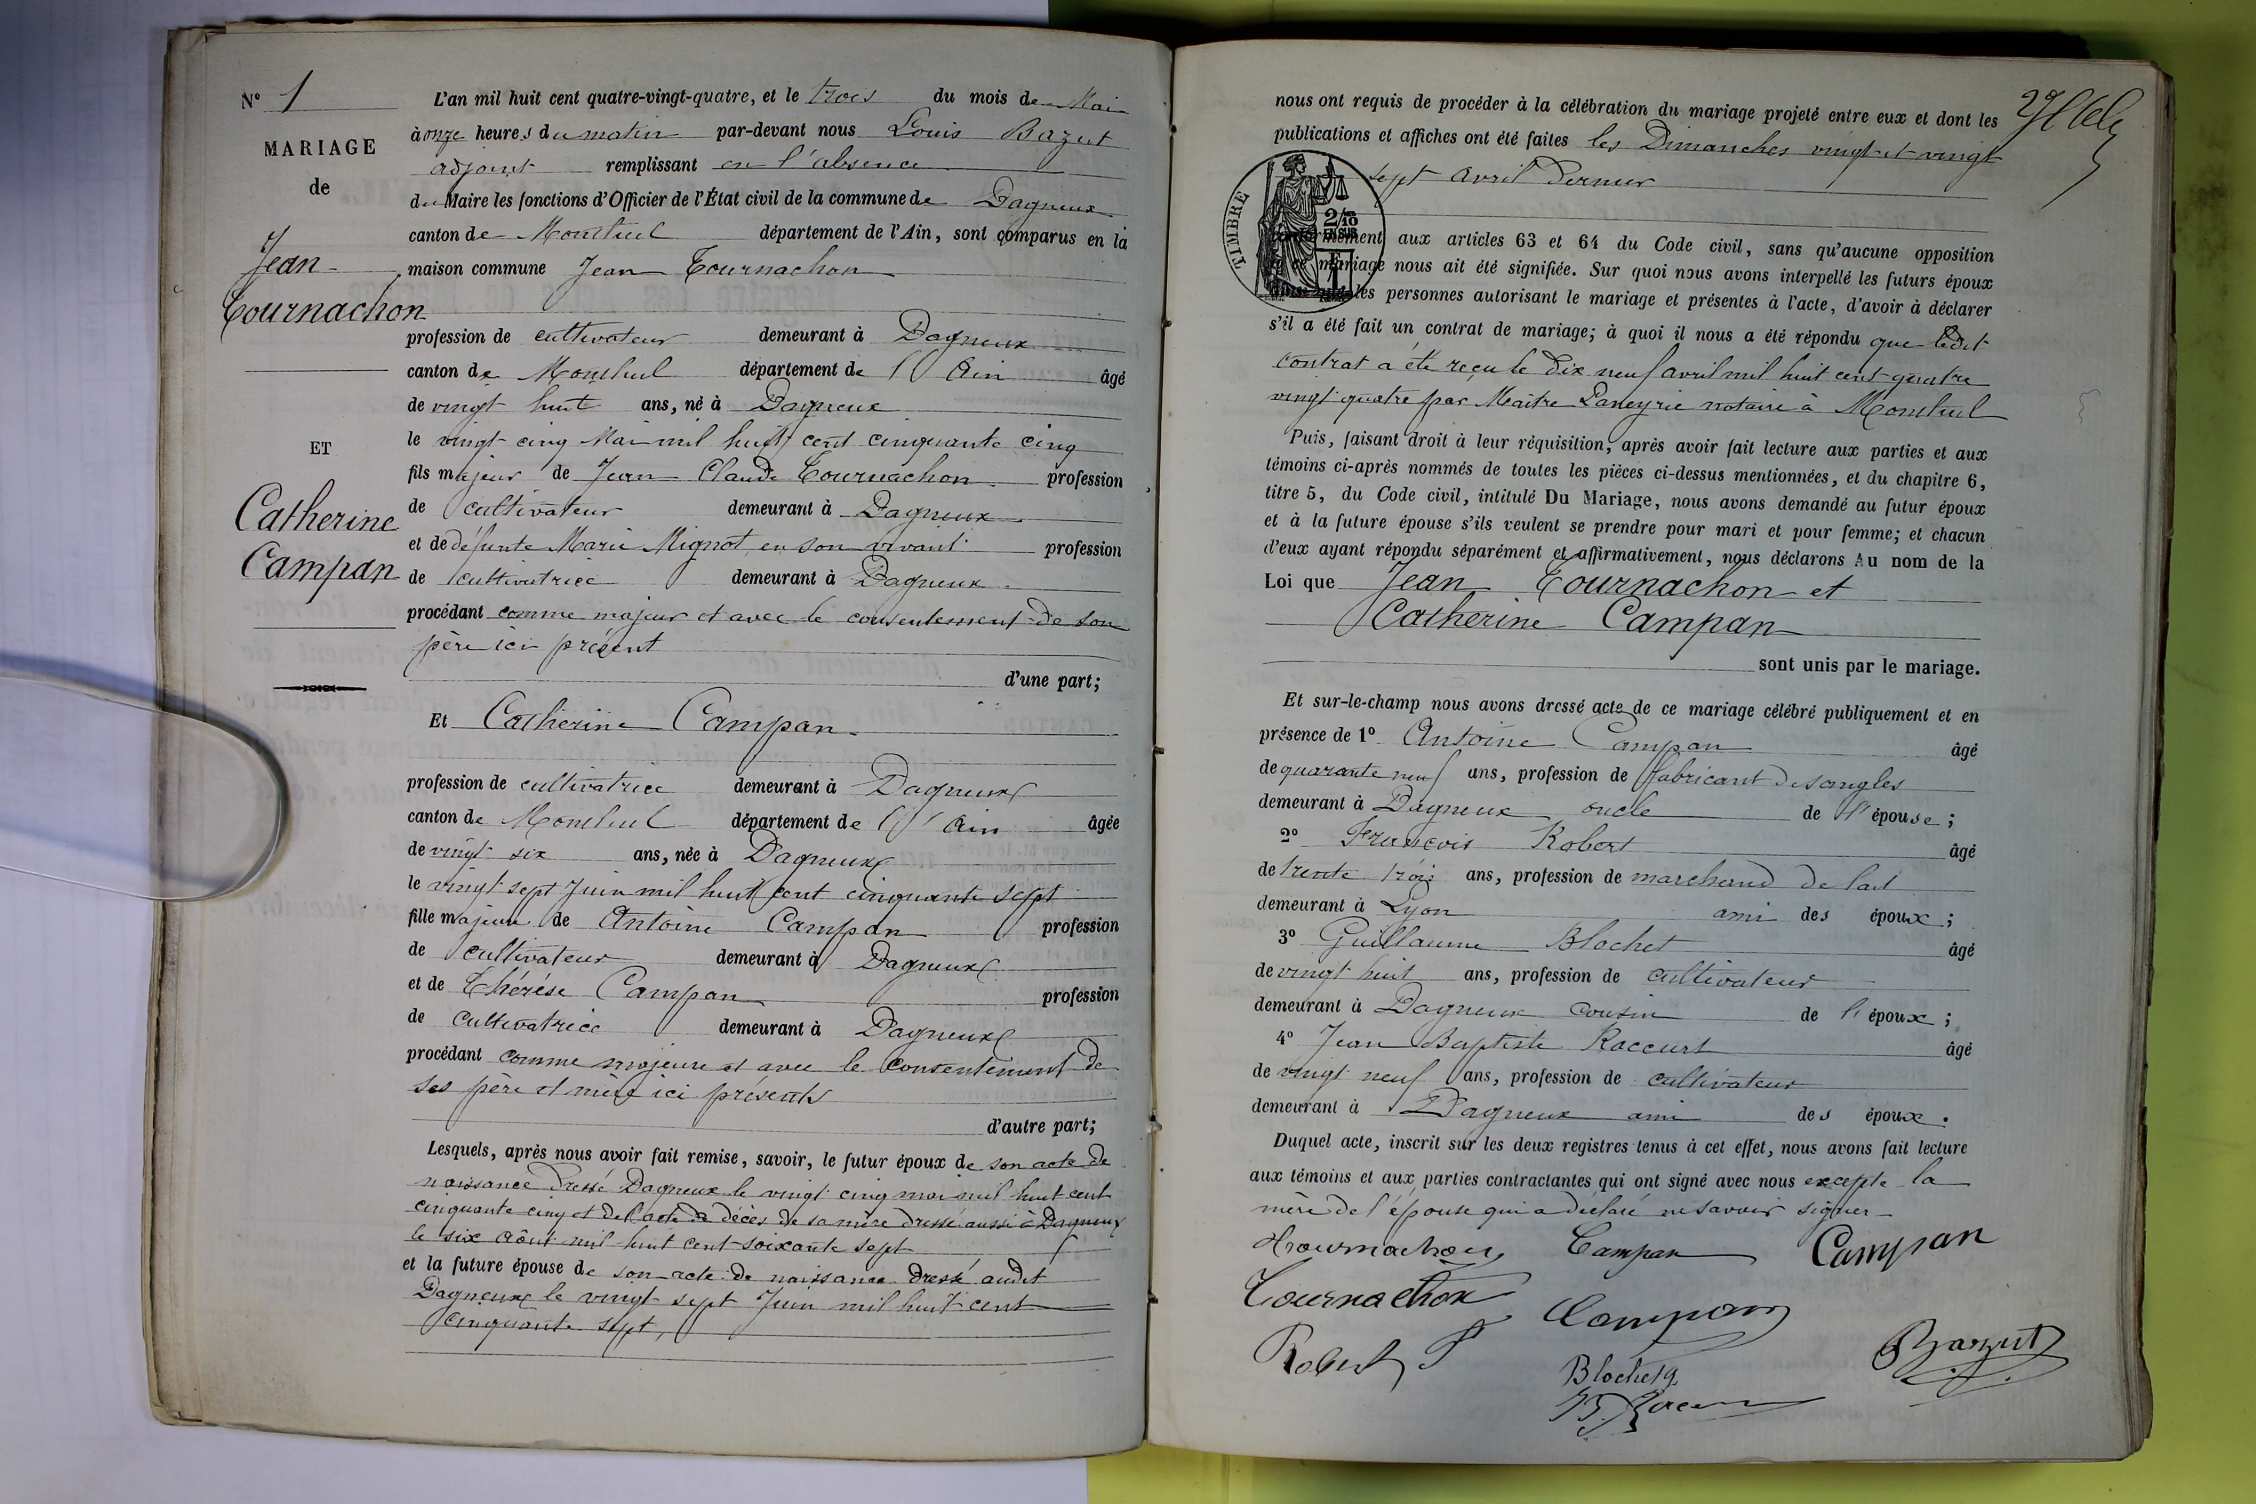 N° 1
MARIAGE
de
Jean
Tournachon
ET
Catherine
Campan
L'an mil huit cent quatre-vingt-quatre, et le trois du mois de Mai
à onze heures du matin par-devant nous Louis Bazut
adjoint remplissant en l'absence
du Maire les fonctions d'Officier de l'État civil de la commune de Dagneux
canton de Montluel département de l'Ain, sont comparus en la
maison commune Jean Tournachon
profession de cultivateur demeurant à Dagneux
canton de Montluel département de l'Ain âgé
de vingt huit ans, né à Dagneux
le vingt-cinq Mai mil huit cent cinquante cinq
fils majeur de Jean Claude Tournachon profession
de cultivateur demeurant à Dagneux
et de défunte Marie Mignot, en son vivant profession
de cultivatrice demeurant à Dagneux
procédant comme majeur et avec le consentement de son
père ici présent
d'une part;
Et Catherine Campan
profession de cultivatrice demeurant à Dagneux
canton de Montluel département de l'Ain âgée
de vingt six ans, née à Dagneux
le vingt sept Juin mil huit cent cinquante sept
fille majeure de Antoine Campan profession
de cultivateur demeurant à Dagneux
et de Thérèse Campan profession
de cultivatrice demeurant à Dagneux
procédant comme majeure et avec le consentement de
ses père et mère ici présents
d'autre part;
Lesquels, après nous avoir fait remise, savoir, le futur époux de son acte de
naissance dressé Dagneux le vingt cinq mai mil huit cent
cinquante cinq et de l'acte de décès de sa mère dressé aussi à Dagneux
le six Août mil huit cent soixante sept
et la future épouse de son acte de naissance dressé audit
Dagneux le vingt sept Juin mil huit cent
cinquante sept,
nous ont requis de procéder à la célébration du mariage projeté entre eux et dont les
publications et affiches ont été faites les Dimanches vingt et vingt
sept avril dernier
TIMBRE
2/10
EN SUS
conformément aux articles 63 et 64 du Code civil, sans qu'aucune opposition
mariage nous ait été signifiée. Sur quoi nous avons interpellé les futurs époux
les personnes autorisant le mariage et présentes à l'acte, d'avoir à déclarer
s'il a été fait un contrat de mariage; à quoi il nous a été répondu que ledit
contrat a été reçu le dix neuf avril mil huit cent quatre
vingt quatre par Maître Laneyrie notaire à Montluel
Puis, faisant droit à leur réquisition, après avoir fait lecture aux parties et aux
témoins ci-après nommés de toutes les pièces ci-dessus mentionnées, et du chapitre 6,
titre 5, du Code civil, intitulé Du Mariage, nous avons demandé au futur époux
et à la future épouse s'ils veulent se prendre pour mari et pour femme; et chacun
d'eux ayant répondu séparément et affirmativement, nous déclarons Au nom de la
Loi que Jean Tournachon et
Catherine Campan
sont unis par le mariage.
Et sur-le-champ nous avons dressé acte de ce mariage célébré publiquement et en
présence de 1° Antoine Campan âgé
de quarante neuf ans, profession de fabricant de sangles
demeurant à Dagneux oncle de l'épouse;
2° François Robert âgé
de trente trois ans, profession de marchand de lait
demeurant à Lyon ami des époux;
3° Guillaume Blochet âgé
de vingt huit ans, profession de cultivateur
demeurant à Dagneux cousin de l'époux;
4° Jean Baptiste Raccurt âgé
de vingt neuf ans, profession de cultivateur
demeurant à Dagneux ami des époux.
Duquel acte, inscrit sur les deux registres tenus à cet effet, nous avons fait lecture
aux témoins et aux parties contractantes qui ont signé avec nous excepté la
mère de l'épouse qui a déclaré ne savoir signer
Tournachon Campan Campan
Tournachon Campan
Robert F Bazut
Blochet g